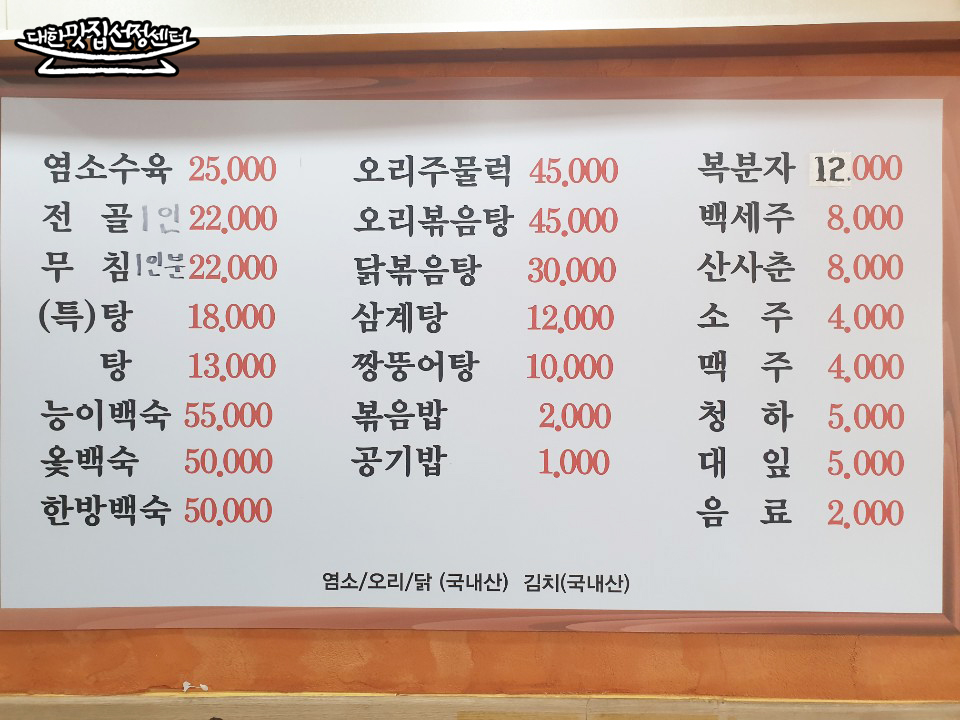 대한맛집선정센터
염소수육 25.000
전 골 1인 22.000
무 침 1인분 22.000
(특)탕 18.000
탕 13.000
능이백숙 55.000
옻백숙 50.000
한방백숙 50.000
오리주물럭 45.000
오리볶음탕 45.000
닭볶음탕 30.000
삼계탕 12.000
짱뚱어탕 10.000
볶음밥 2.000
공기밥 1.000
복분자 12.000
백세주 8.000
산사춘 8.000
소 주 4.000
맥 주 4.000
청 하 5.000
대 잎 5.000
음 료 2.000
염소/오리/닭 (국내산) 김치(국내산)